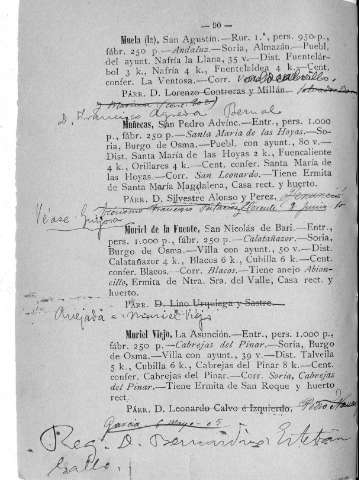 — 90 —
Muela (la), San Agustín.—Rur. 1.ª, pers. 950 p.,
fábr. 250 p.—Andaluz.—Soria, Almazán.—Puebl.
del ayunt. Nafría la Llana, 35 v.—Dist. Fuentelár-
bol 3 k., Nafría 4 k., Fuentelaldea 4 k.—Cent.
confer. La Ventosa.—Corr.
PÁRR. D. Lorenzo Contreras y Millán.
D. Francisco Bernal
Muñecas, San Pedro Advínc.—Entr., pers. 1.000
p., fábr. 250 p.—Santa María de las Hoyas.—So-
ria, Burgo de Osma.—Puebl. con ayunt., 80 v.—
Dist. Santa María de las Hoyas 2 k., Fuencaliente
4 k., Orillares 4 k.—Cent. confer. Santa María de
las Hoyas.—Corr. San Leonardo.—Tiene Ermita
de Santa María Magdalena, Casa rect. y huerto.
PÁRR. D. Silvestre Alonso y Perez,
Véase
Muriel de la Fuente, San Nicolás de Bari.—Entr.,
pers. 1.000 p., fábr. 250 p.—Calatañazor.—Soria,
Burgo de Osma.—Villa con ayunt., 50 v.—Dist.
Calatañazor 4 k., Blacos 6 k., Cubilla 6 k.—Cent.
confer. Blacos.—Corr. Blacos.—Tiene anejo Abion-
cillo, Ermita de Ntra. Sra. del Valle, Casa rect. y
huerto.
PÁRR. D. Lino Urquiega y Sastre.
Anejada a Muriel Viejo
Muriel Viejo, La Asunción.—Entr., pers. 1.000 p.,
fábr. 250 p.—Cabrejas del Pinar.—Soria, Burgo
de Osma.—Villa con ayunt., 39 v.—Dist. Talveila
5 k., Cubilla 6 k., Cabrejas del Pinar 8 k.—Cent.
confer. Cabrejas del Pinar.—Corr. Soria, Cabrejas
del Pinar.—Tiene Ermita de San Roque y huerto
rect.
PÁRR. D. Leonardo Calvo é Izquierdo,
García
Reg. D. Bernardino Esteban
Gallo.